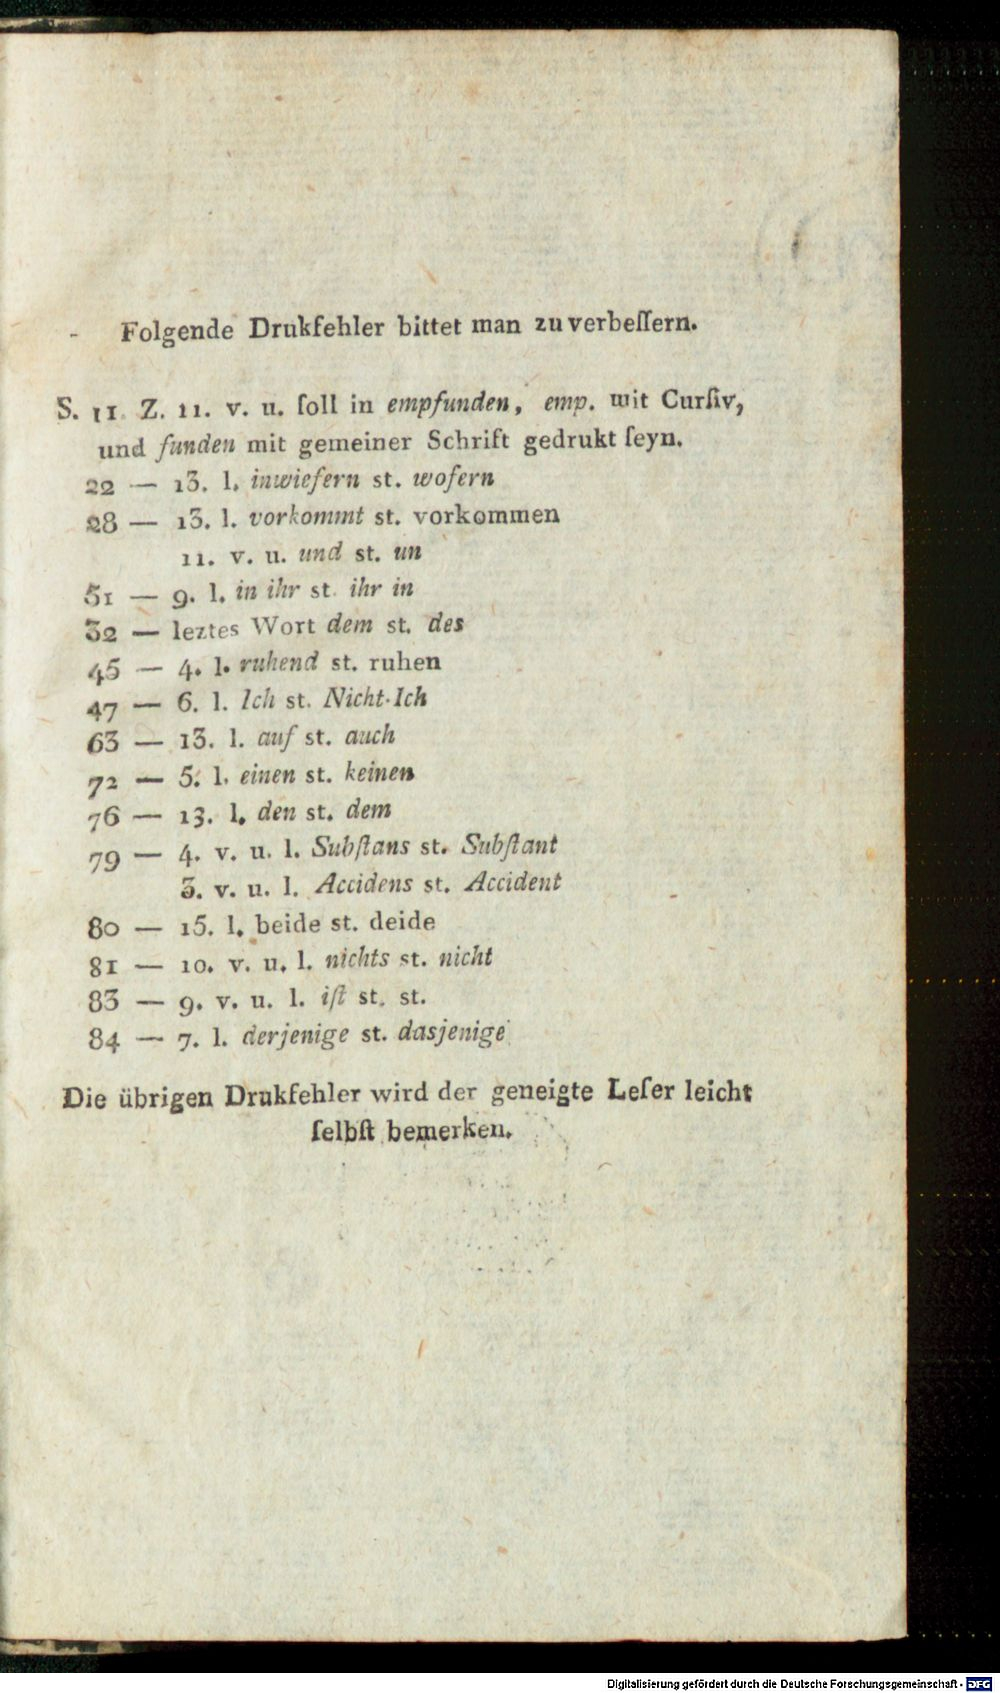 Folgende Drukfehler bittet man zu verbeſſern.
S. 11. Z. 11. v. u. ſoll in empfunden, emp. mit Curſiv,
und funden mit gemeiner Schrift gedrukt ſeyn.
22 — 13. l. inwiefern st. wofern
28 — 13. l. vorkommt st. vorkommen
11. v. u. und st. un
51 — 9. l. in ihr st. ihr in
32 — leztes Wort dem st. des
45 — 4. l. ruhend st. ruhen
47 — 6. l. Ich st. Nicht-Ich
63 — 13. l. auf st. auch
72 — 5. l. einen st. keinen
76 — 13. l. den st. dem
79 — 4. v. u. l. Subſtans st. Subſtant
3. v. u. l. Accidens st. Accident
80 — 15. l. beide st. deide
81 — 10. v. u. l. nichts st. nicht
83 — 9. v. u. l. iſt st. st.
84 — 7. l. derjenige st. dasjenige
Die übrigen Drukfehler wird der geneigte Leſer leicht
ſelbſt bemerken.
Digitalisierung gefördert durch die Deutsche Forschungsgemeinschaft - DFG